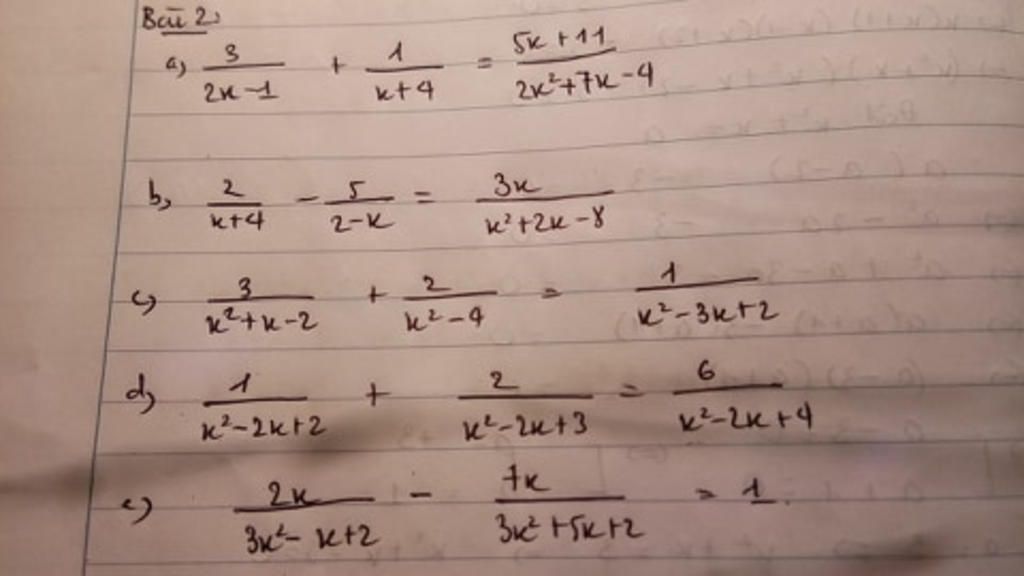 Bài 2:
a, 3/(2x-1) + 1/(x+4) = (5x+11)/(2x²+7x-4)
b, 2/(x+4) - 5/(2-x) = 3x/(x²+2x-8)
c, 3/(x²+x-2) + 2/(x²-4) = 1/(x²-3x+2)
d, 1/(x²-2x+2) + 2/(x²-2x+3) = 6/(x²-2x+4)
e, 2x/(3x²-x+2) - 7x/(3x²+5x+2) = 1.